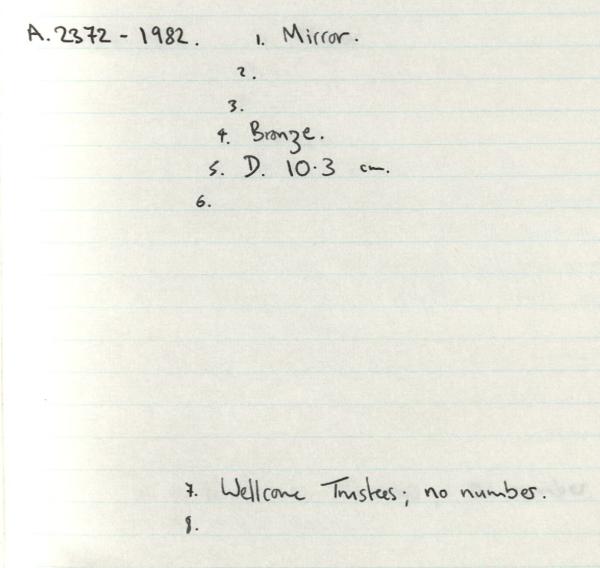 A.2372 - 1982. 1. Mirror.
2.
3.
4. Bronze.
5. D. 10.3 cm.
6.
7. Wellcome Trustees; no number.
8.